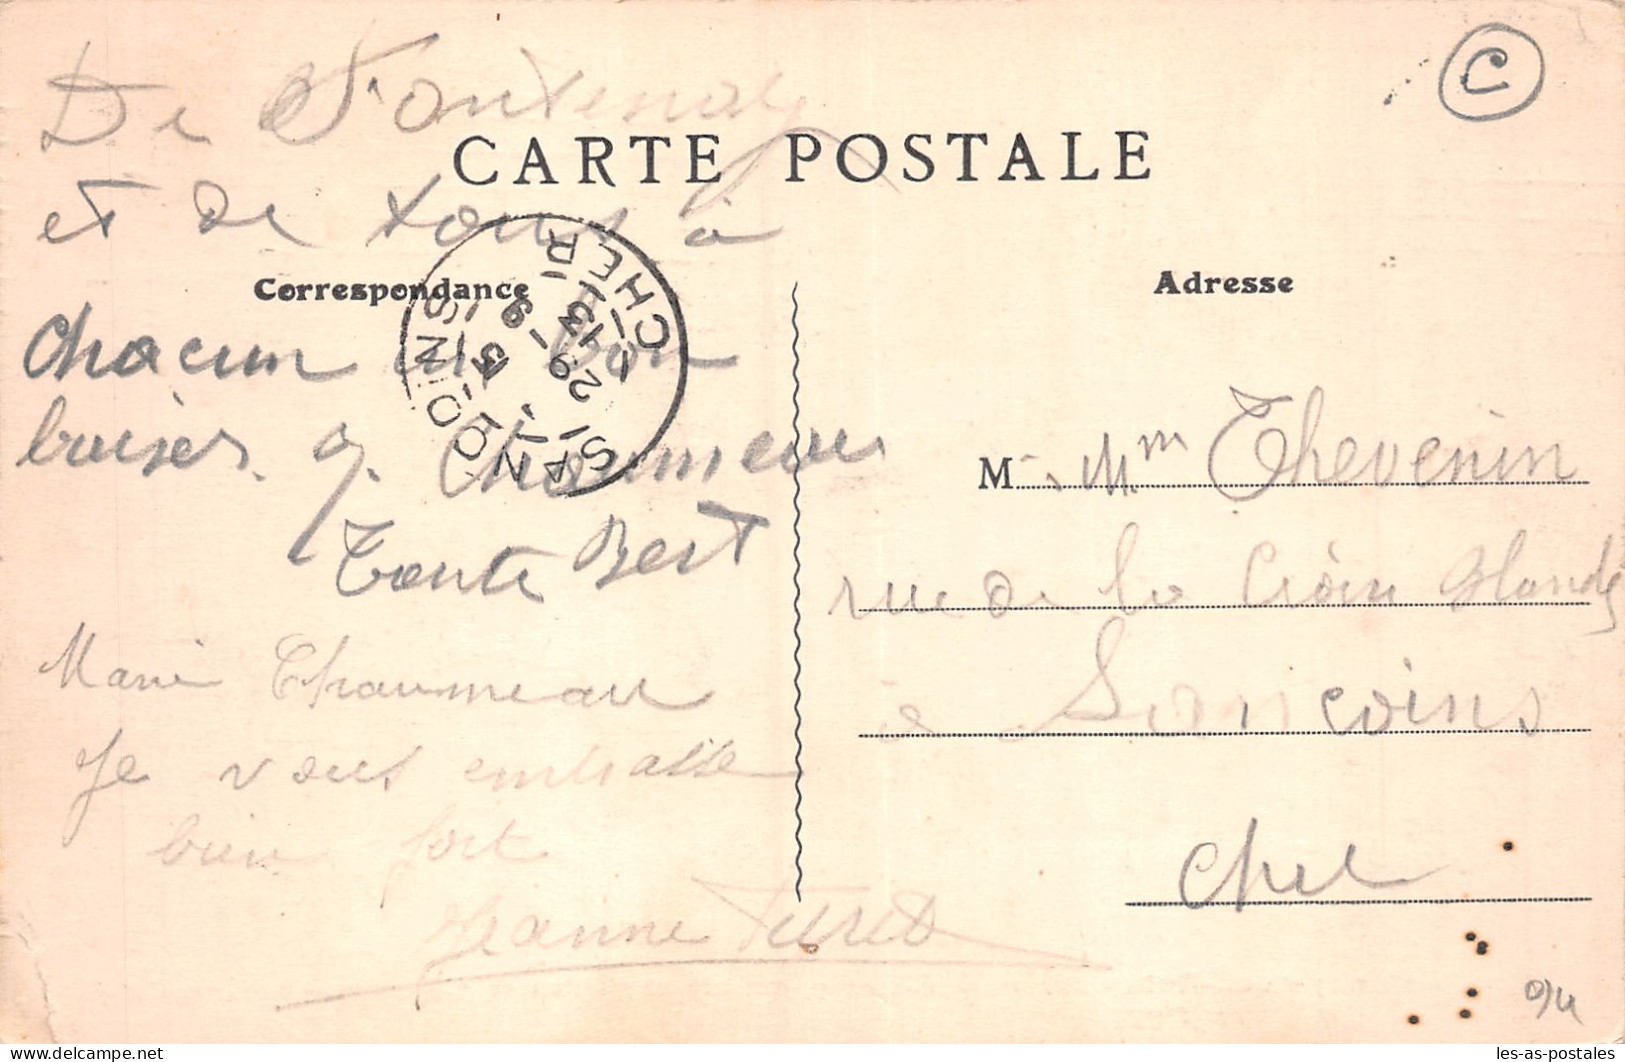 C
De Fontenay
CARTE POSTALE
et de tous à
Correspondance
Adresse
chacun un bon
baiser. J. Chaumeau
Tante Bert
SANCOINS
CHER
29 - 5
13
M - Mm Thevenin
rue de la Croix Blanche
à Sancoins
Cher
Marie Chaumeau
Je vous embrasse
bien fort
Jeanne
94
les-as-postales